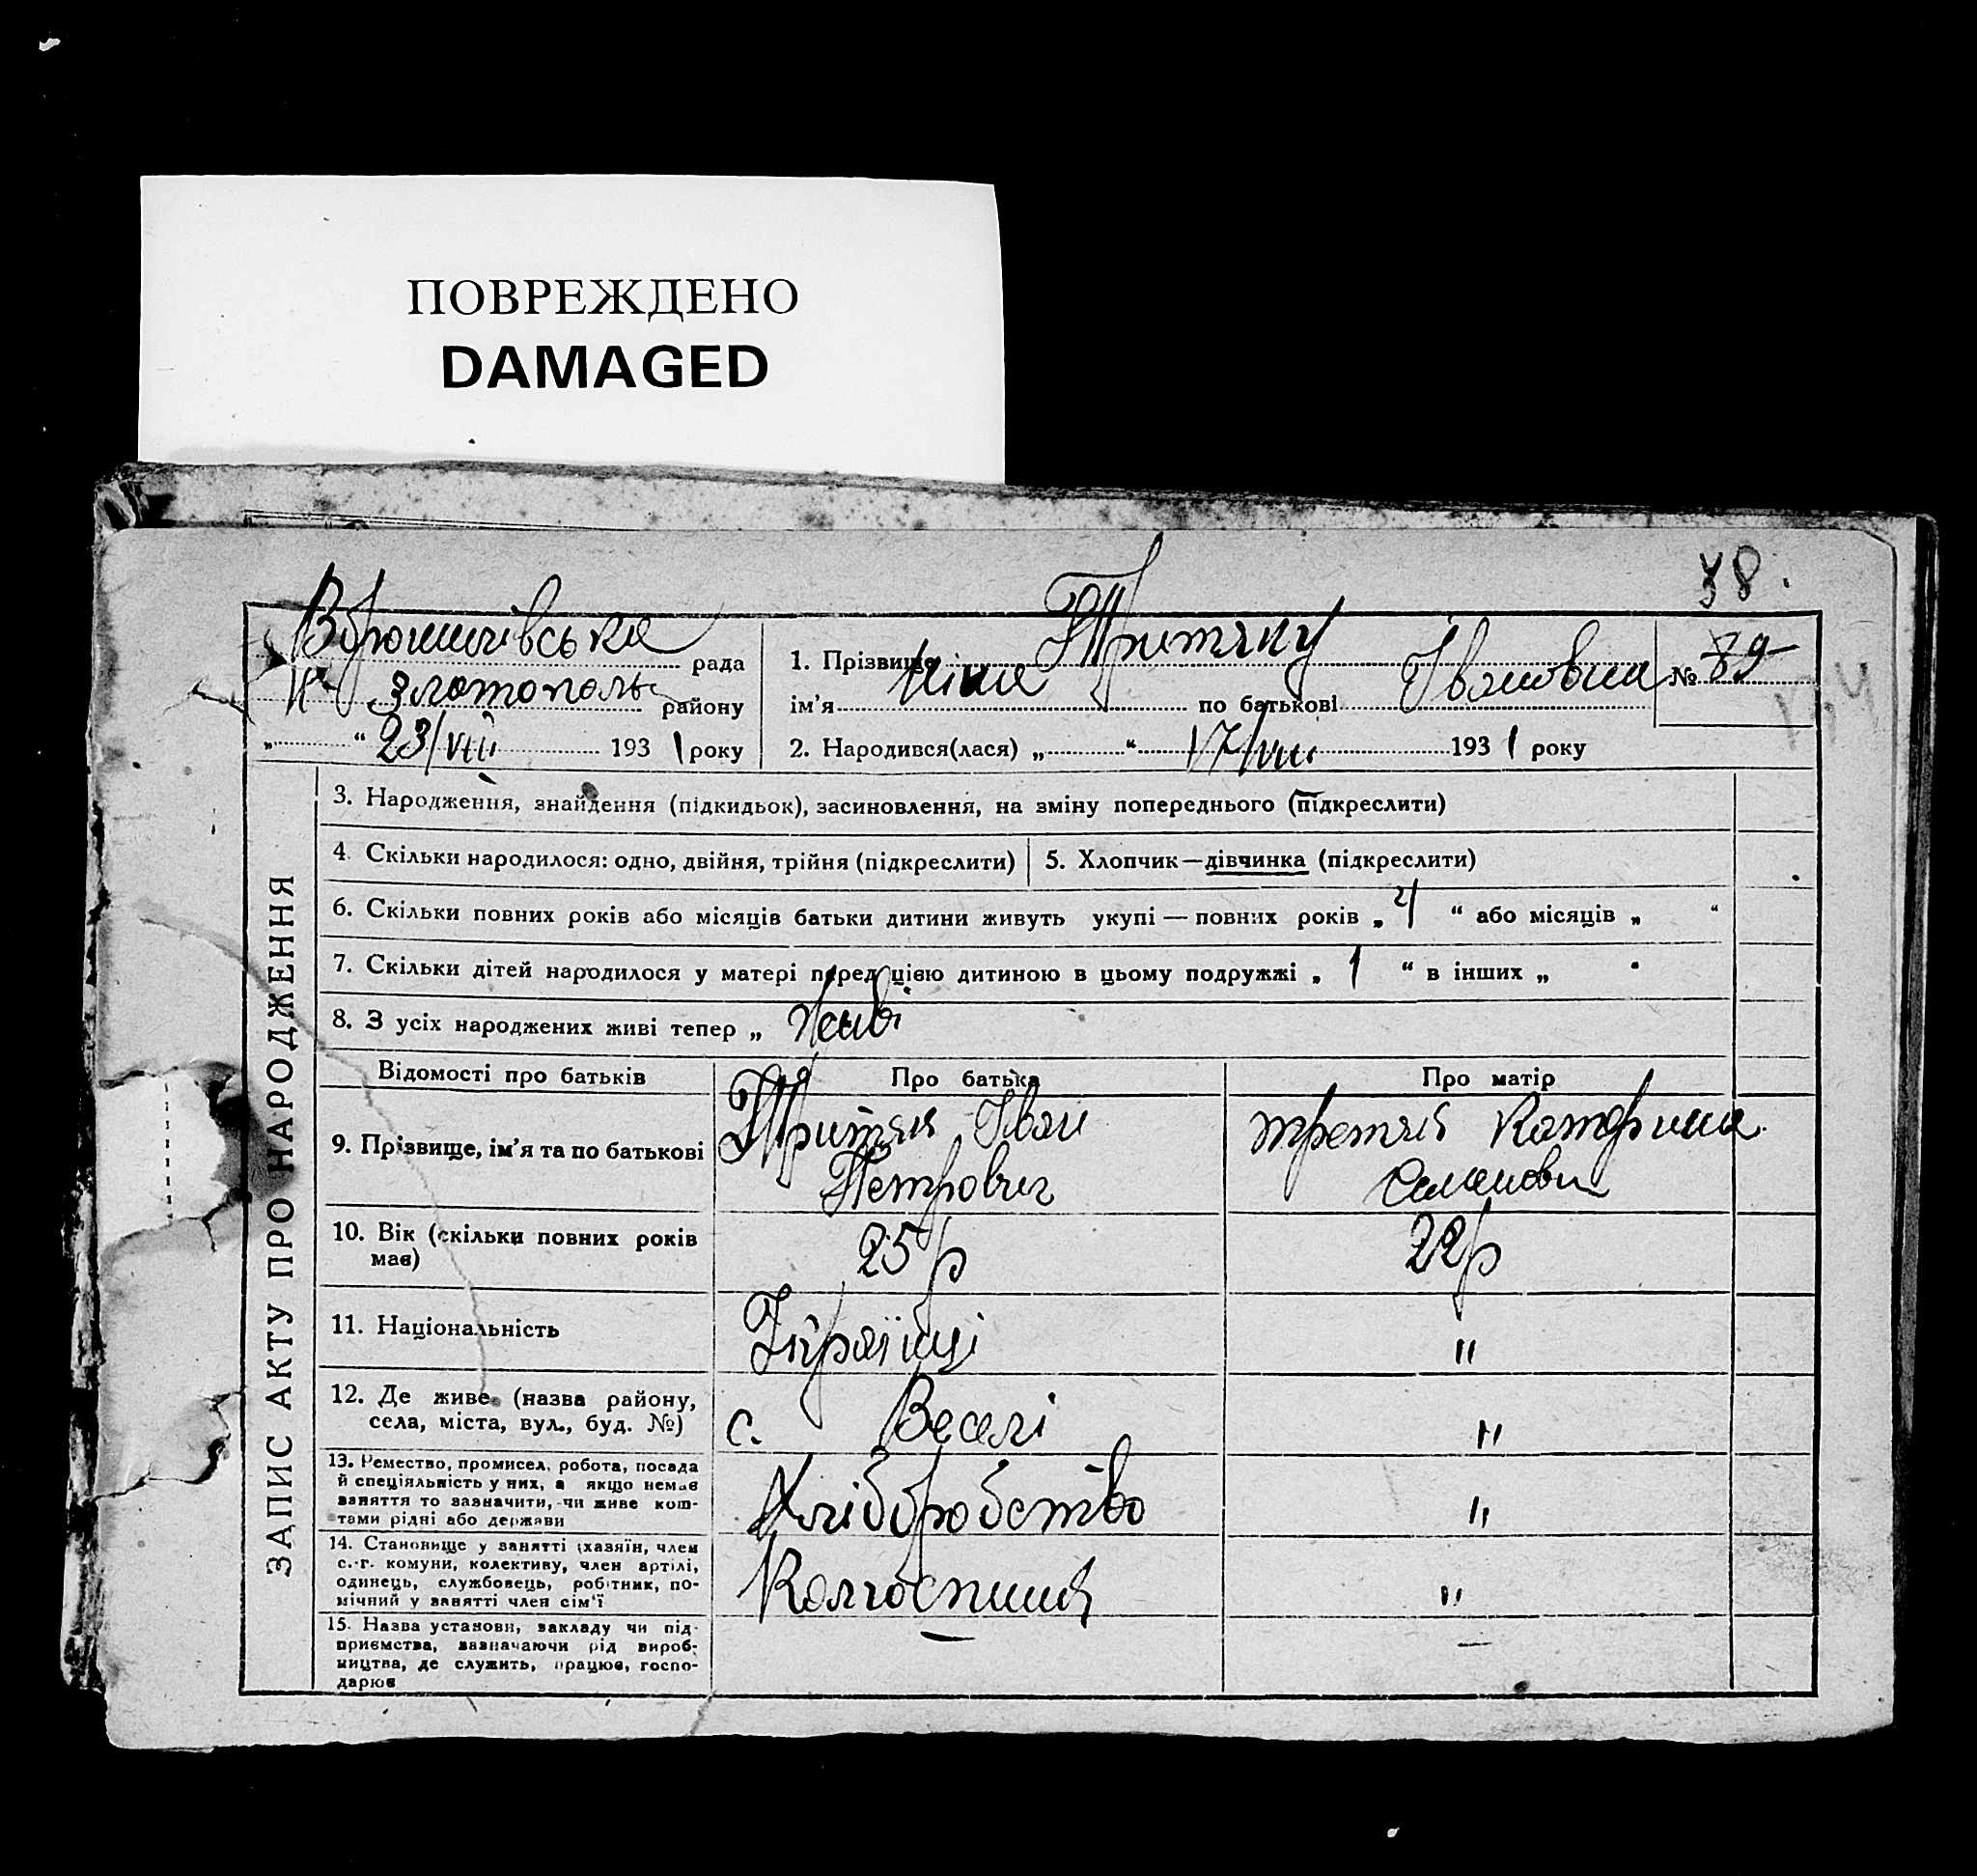 ПОВРЕЖДЕНО
DAMAGED
38.
рада
району
„ “ 23/VIII 1931 року
1. Прізвище
ім’я Ніна по батькові Івановна
№ 89
2. Народився(лася) „ “ 17/VIII 1931 року
ЗАПИС АКТУ ПРО НАРОДЖЕННЯ
3. Народження, знайдення (підкидьок), засиновлення, на зміну попереднього (підкреслити)
4. Скільки народилося: одно, двійня, трійня (підкреслити)
5. Хлопчик—дівчинка (підкреслити)
6. Скільки повних років або місяців батьки дитини живуть укупі — повних років „ 4 “ або місяців „ “
7. Скільки дітей народилося у матері перед цією дитиною в цьому подружжі „ 1 “ в інших „ “
8. З усіх народжених живі тепер „
Відомості про батьків
Про батька
Про матір
9. Прізвище, ім’я та по батькові
Іван
Петрович
третяк Катерина
10. Вік (скільки повних років
має)
25 р
22 р
11. Національність
Українці
"
12. Де живе (назва району,
села, міста, вул., буд. №)
с. Веселі
"
13. Ремество, промисел, робота, посада
й спеціяльність у них, а якщо немає
заняття то зазначити, чи живе кош-
тами рідні або держави
Хліборобство
"
14. Становище у занятті (хазяїн, член
с.-г. комуни, колективу, член артілі,
одинець, службовець, робітник, по-
мічний у занятті член сім’ї
"
15. Назва установи, закладу чи під-
приємства, зазначаючи рід вироб-
ництва, де служить, працює, госпо-
дарює
—
—